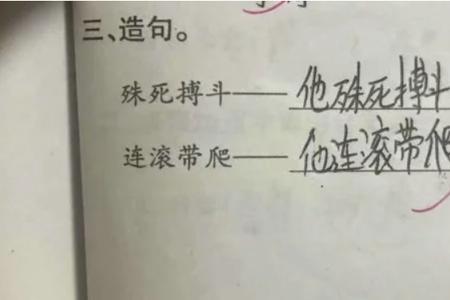 三、造句。
殊死搏斗——他殊死搏斗
连滚带爬——他连滚带爬